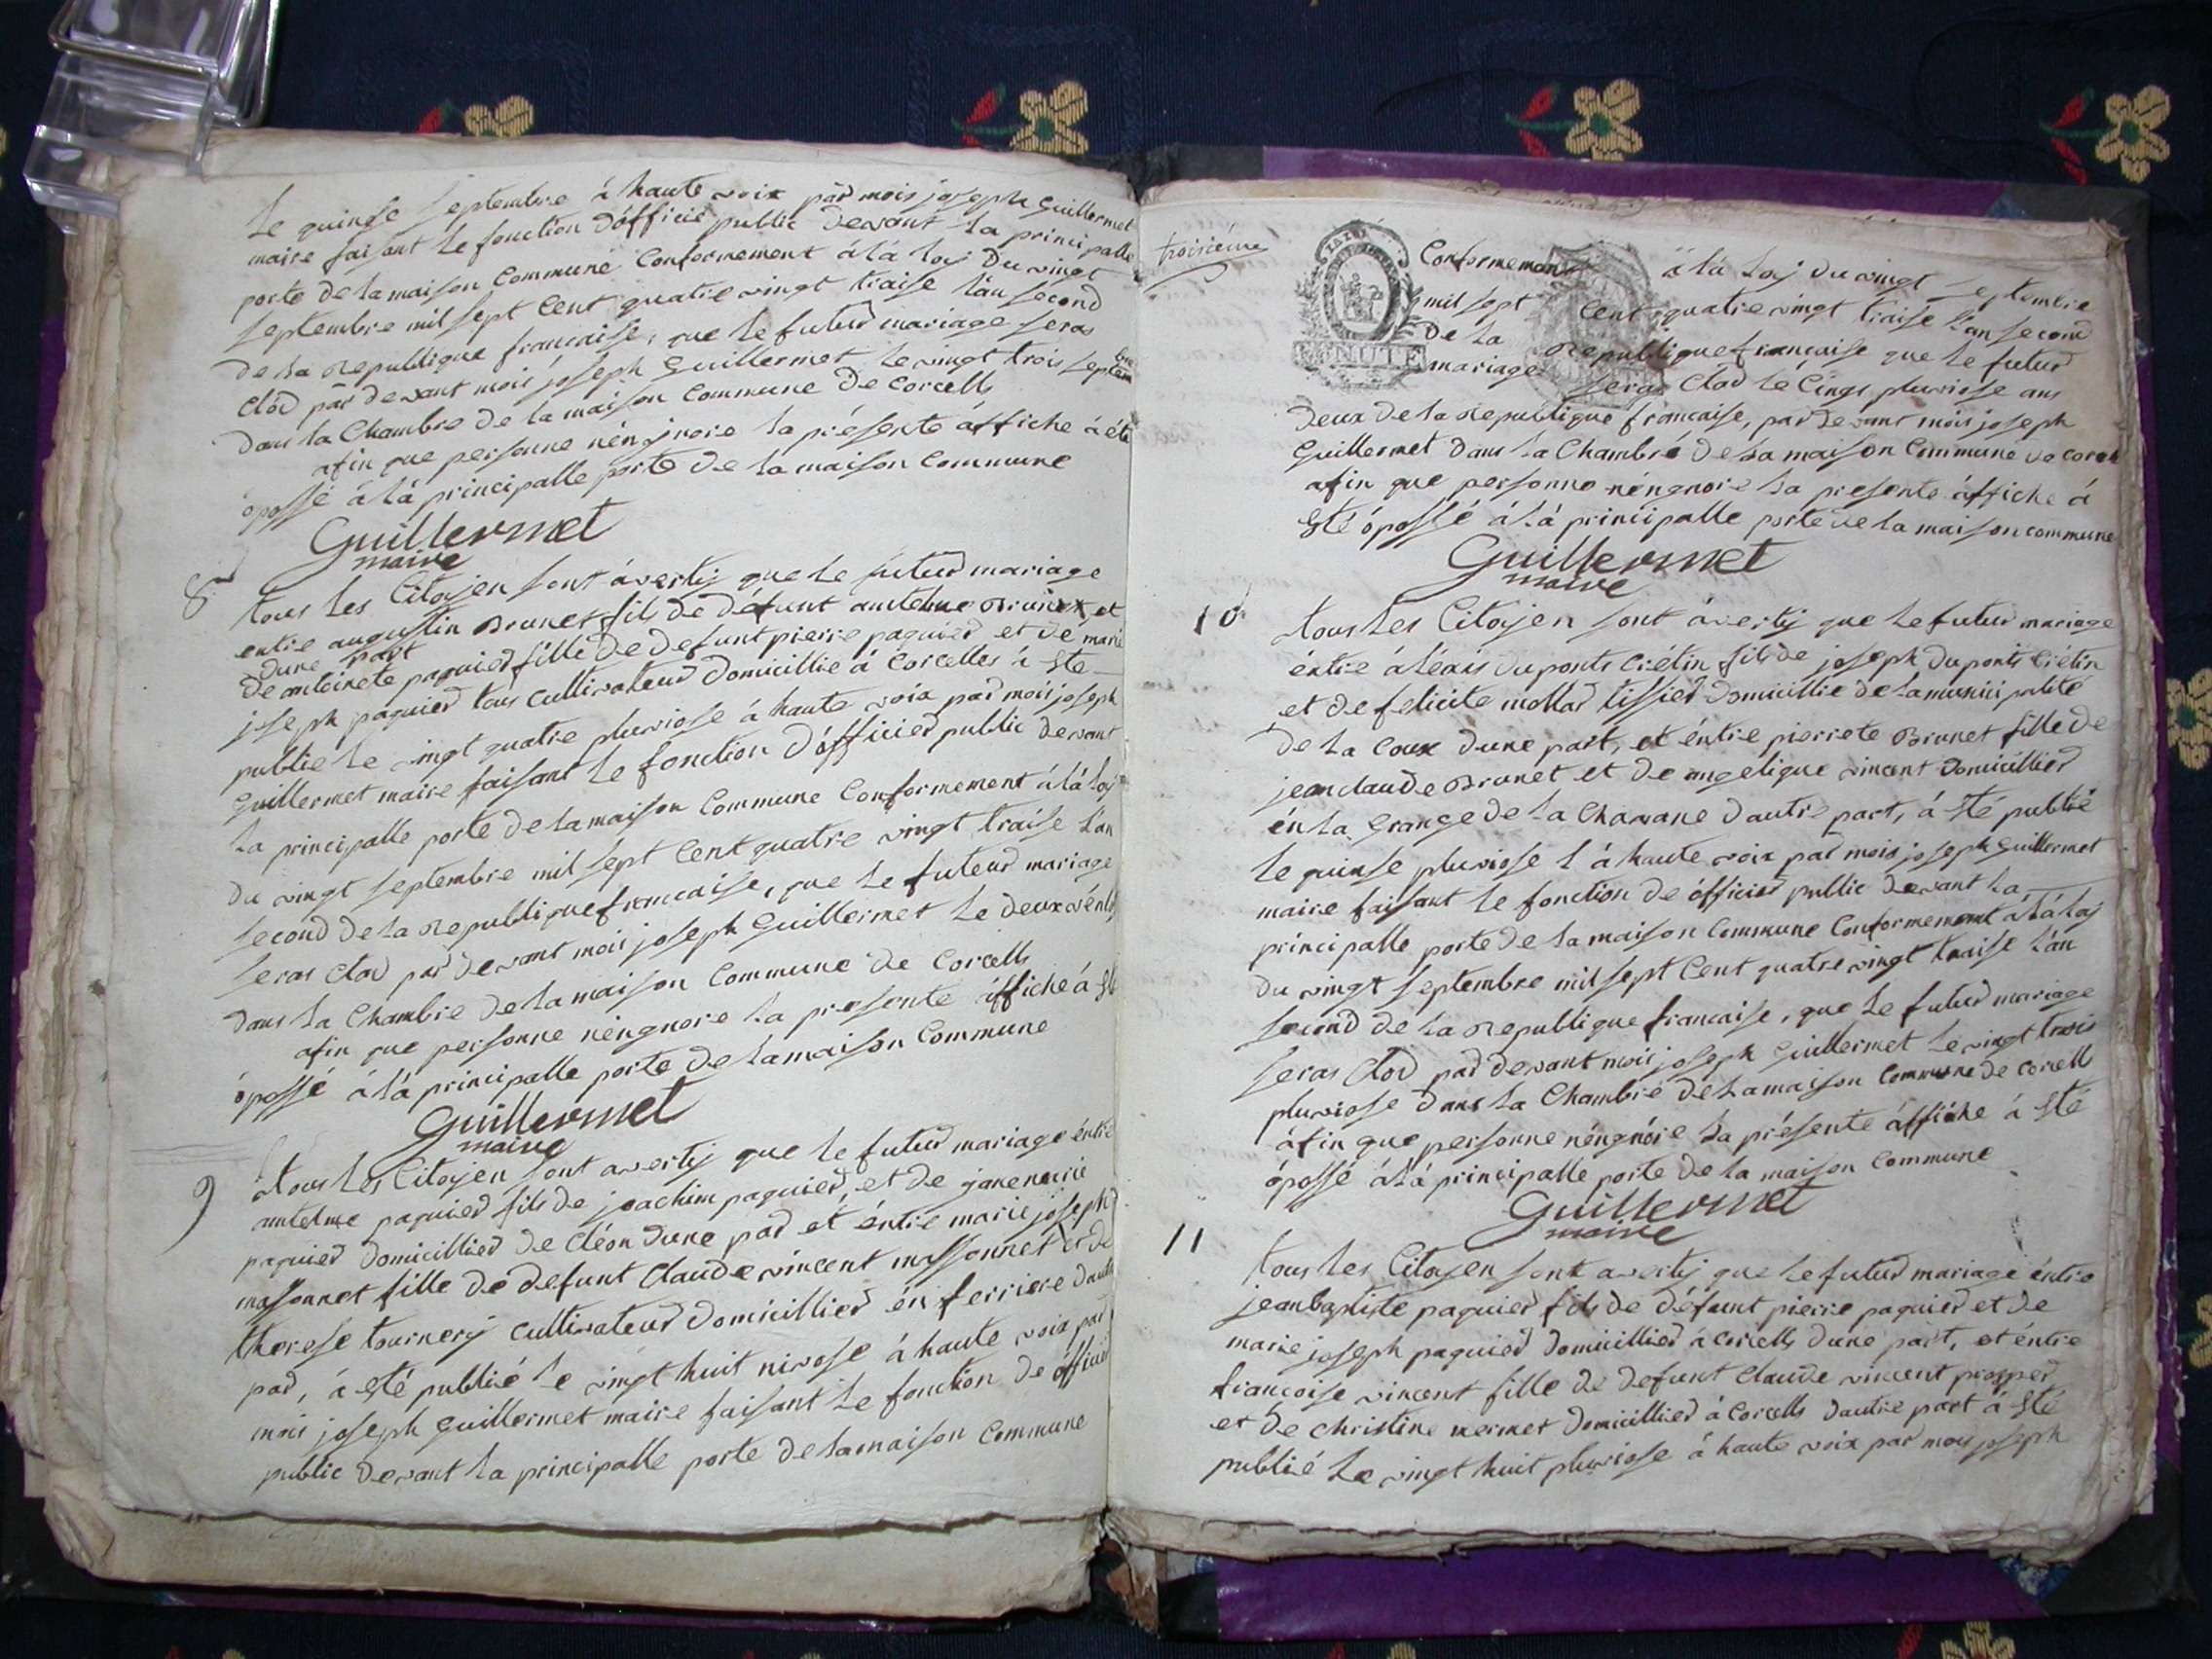 Le quinse septembre á haute voix par mois joseph Guillermet
maire faisant le fonction dófficié public devant la principalle
porte de la maison Commune Conformement á lá loj du vingt
septembre mil sept Cent quatre vingt traise lán second
de la Republique francaise, que le futur mariage seras
Clod pár devant mois joseph Guillermet le vingt trois septembre
dans la Chambre de la maison Commune de Corcells
afin que personne néngnore la présente áffiche á été
ópossé á lá principalle porte de la maison Commune
Guillermet
maire
8 tous les Citoyen sont ávertij que le futur mariage
entre augustin Brunet fils de défunt antelme Brunet, et
dune part
de antoinete paquier fille de defunt pierre paquier et de marie
joseph paquier tous cultivateur domicillié á Corcelles á ste
publié le vingt quatre pluviose á haute voix par mois joseph
Guillermet maire faisant le fonction dófficier public devant
la principalle porte de la maison Commune Conformement á lá loj
du vingt septembre mil sept Cent quatre vingt traise lán
second de la Republique francaise, que le futeur mariage
seras clod par devant mois joseph Guillermet le deux vento
dans la Chambre de la maison Commune de Corcells
afin que personne néngnore la presente áffiche á sté
ópossé á lá principalle porte de la maison Commune
Guillermet
maire
9 tous les Citoyen sont avertij que le futur mariage éntre
antelme paquier fils de joachim paquier, et de
paquier domicillier de Cléon dune par et éntre marie joseph
massonnet fille de defunt Claude vincent massonnet et de
therese tournerij cultivateur domicillier én ferriere dautre
par, á esté publié le vingt huit nivose á haute voix par
mois joseph Guillermet maire faisant le fonction de óffficier
public devant la principalle porte de la maison Commune
troisiéme
Conformement á lá loj du vingt septembre
mil sept Cent quatre vingt traise lán second
de la Republique francaise que le futur
mariage seras Clod le Cinqs pluviose ans
deux de la Republique francaise, par devant mois joseph
Guillermet dans la Chambre de la maison Commune de Corcell
afin que personne néngnore la presente áffiche á
sté ópossé á lá principalle porte de la maison commune
Guillermet
maire
10 tous les Citoyen sont ávertij que le futur mariage
éntre áléxis duponts Criétin fils de joseph duponts Criétin
et de felicite mollar tissier domicillié de la municipalité
de la Coux dune part, et éntre pierrete Brunet fille de
jean claude Brunet et de angelique vincent domicillier
én la Grange de la Chavane dautre part, á sté publié
le quinse pluviose l á haute voix par mois joseph Guillermet
maire faisant le fonction de officier public devant la
principalle porte de la maison Commune Conformement á lá loj
du vingt septembre mil sept Cent quatre vingt traise lán
second de la Republique francaise, que le futur mariage
seras Clod par devant mois joseph Guillermet le vingt trois
pluviose dans la Chambre de la maison Commune de Corcell
áfin que personne néngnóre la présente áffiche á sté
ópossé á lá principalle porte de la maison Commune
Guillermet
maire
11 tous les Citoyen sont avertij que le futur mariage éntre
jean baptiste paquier fils de défunt pierre paquier et de
marie joseph paquier domicillier á Corcells dune part, et éntre
francoise vincent fille de defunt Claude vincent prosper
et de christine mermet domicillier á Corcells dautre part á sté
publié le vingt huit pluviose á haute voix par mois joseph